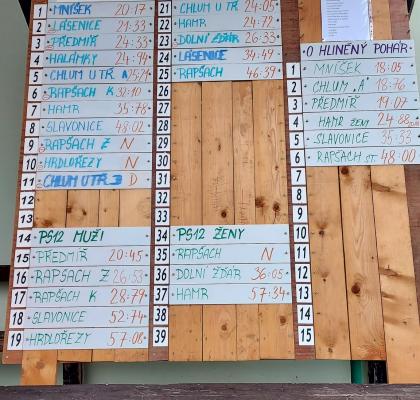 1 MNÍŠEK 20·17
2 LÁSENICE 21·33
3 PŘEDMÍŘ 24·33
4 HALÁMKY 24·94
5 CHLUM U TŘ. A 25·71
6 RAPŠACH K 32·10
7 HAMR 35·78
8 SLAVONICE 48·02
9 RAPŠACH Ž N
10 HRDLOŘEZY N
11 CHLUM U TŘ. B D
12
13
14 PS12 MUŽI
15 PŘEDMÍŘ 20·45
16 RAPŠACH Z 26·53
17 RAPŠACH K 28·79
18 SLAVONICE 52·74
19 HRDLOŘEZY 57·06
21 CHLUM U TŘ.
22 HAMR 24·72
23 DOLNÍ ŽĎÁR 26·33
24 LÁSENICE 34·49
25 RAPŠACH 46·39
26
27
28
29
30
31
32
33
34 PS12 ŽENY
35 RAPŠACH N
36 DOLNÍ ŽĎÁR 36·05
37 HAMR 57·34
38
39
O HLINĚNÝ POHÁR
1 MNÍŠEK 18·05
2 CHLUM „A" 18·76
3 PŘEDMÍŘ 19·07
4 HAMR ŽENY 24·88
5 SLAVONICE 35·35
6 RAPŠACH ST. 48·00
7
8
9
10
11
12
13
14
15